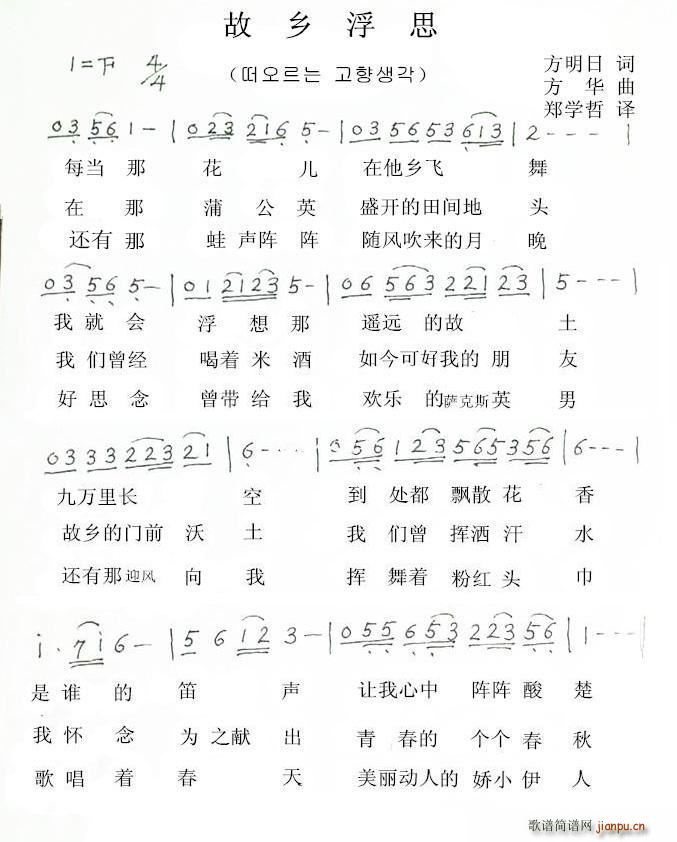 故乡浮思
1=F 4/4
(떠오르는 고향생각)
方明日 词
方华 曲
郑学哲 译
0 3 5 6 1 - | 0 2 3 2 1 6 5 - | 0 3 5 6 5 3 6 1 3 | 2 - - - |
每当那 花 儿 在他乡飞 舞
在那 蒲公英 盛开的田间地 头
还有那 蛙声阵阵 随风吹来的月 晚
0 3 5 6 5 - | 0 1 2 1 2 3 5 - | 0 6 5 6 3 2 2 1 2 3 | 5 - - - |
我就会 浮想那 遥远的故 土
我们曾经 喝着米酒 如今可好我的朋 友
好思念 曾带给我 欢乐的萨克斯英 男
0 3 3 3 2 2 3 2 1 | 6 - · · · | 0 5 6 1 2 3 5 6 5 3 5 6 | 6 - - - |
九万里长 空 到处都飘散花 香
故乡的门前沃 土 我们曾挥洒汗 水
还有那迎风向 我 挥舞着粉红头 巾
i · 7 i 6 - | 5 6 1 2 3 - | 0 5 5 6 5 3 2 2 3 5 6 | 1 - - - |
是谁的 笛声 让我心中阵阵酸 楚
我怀念 为之献出 青春的个个春 秋
歌唱着 春天 美丽动人的娇小伊 人
歌谱简谱网 jianpu.cn